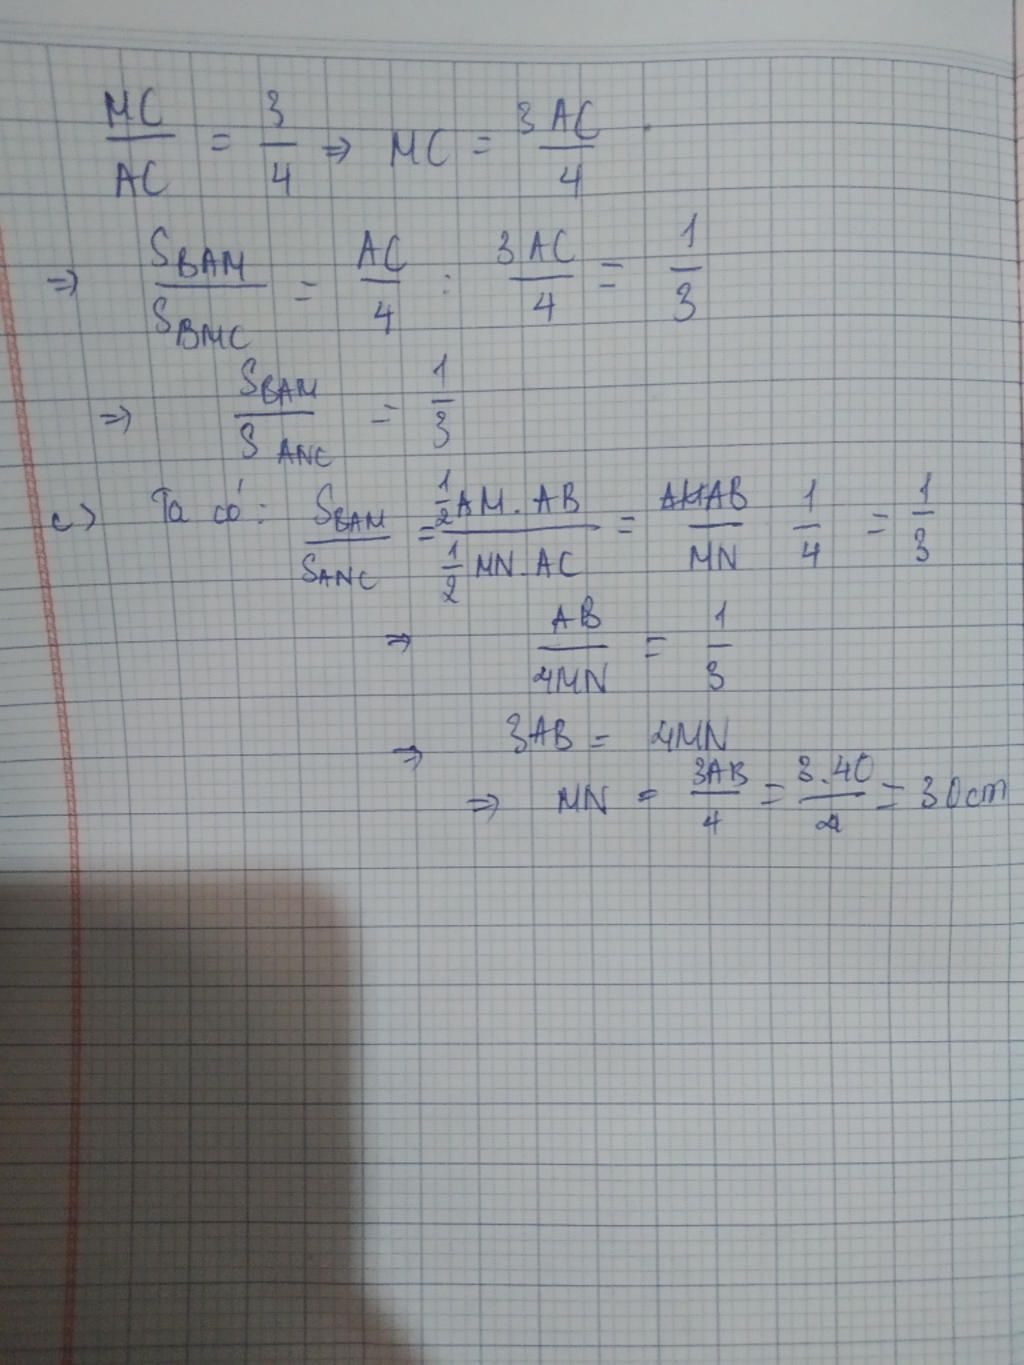 MC/AC = 3/4 => MC = 3AC/4
=> S_BAM/S_BMC = AC/4 : 3AC/4 = 1/3
=> S_BAM/S_ANC = 1/3
c) Ta có: S_BAM/S_ANC = (1/2 AM . AB)/(1/2 MN . AC) = AB/MN 1/4 = 1/3
=> AB/4MN = 1/3
=> 3AB = 4MN
=> MN = 3AB/4 = 3.40/4 = 30cm